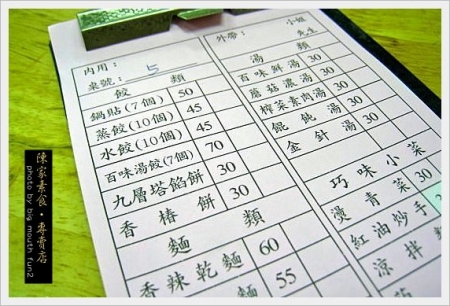 內用：
桌號： 5
餃 類
鍋貼(7個) 50
蒸餃(10個) 45
水餃(10個) 45
百味湯餃(7個) 70
九層塔餡餅 30
香椿餅 30
麵 類
香辣乾麵 60
麵 55
外帶： 小姐
先生
湯 類
百味鮮湯 30
蘑菇濃湯 30
榨菜素肉湯 30
餛飩湯 30
金針湯 30
巧味小菜
燙青菜 30
紅油炒手
涼拌
陳家素食·專賣店
photo by big mouth fun2